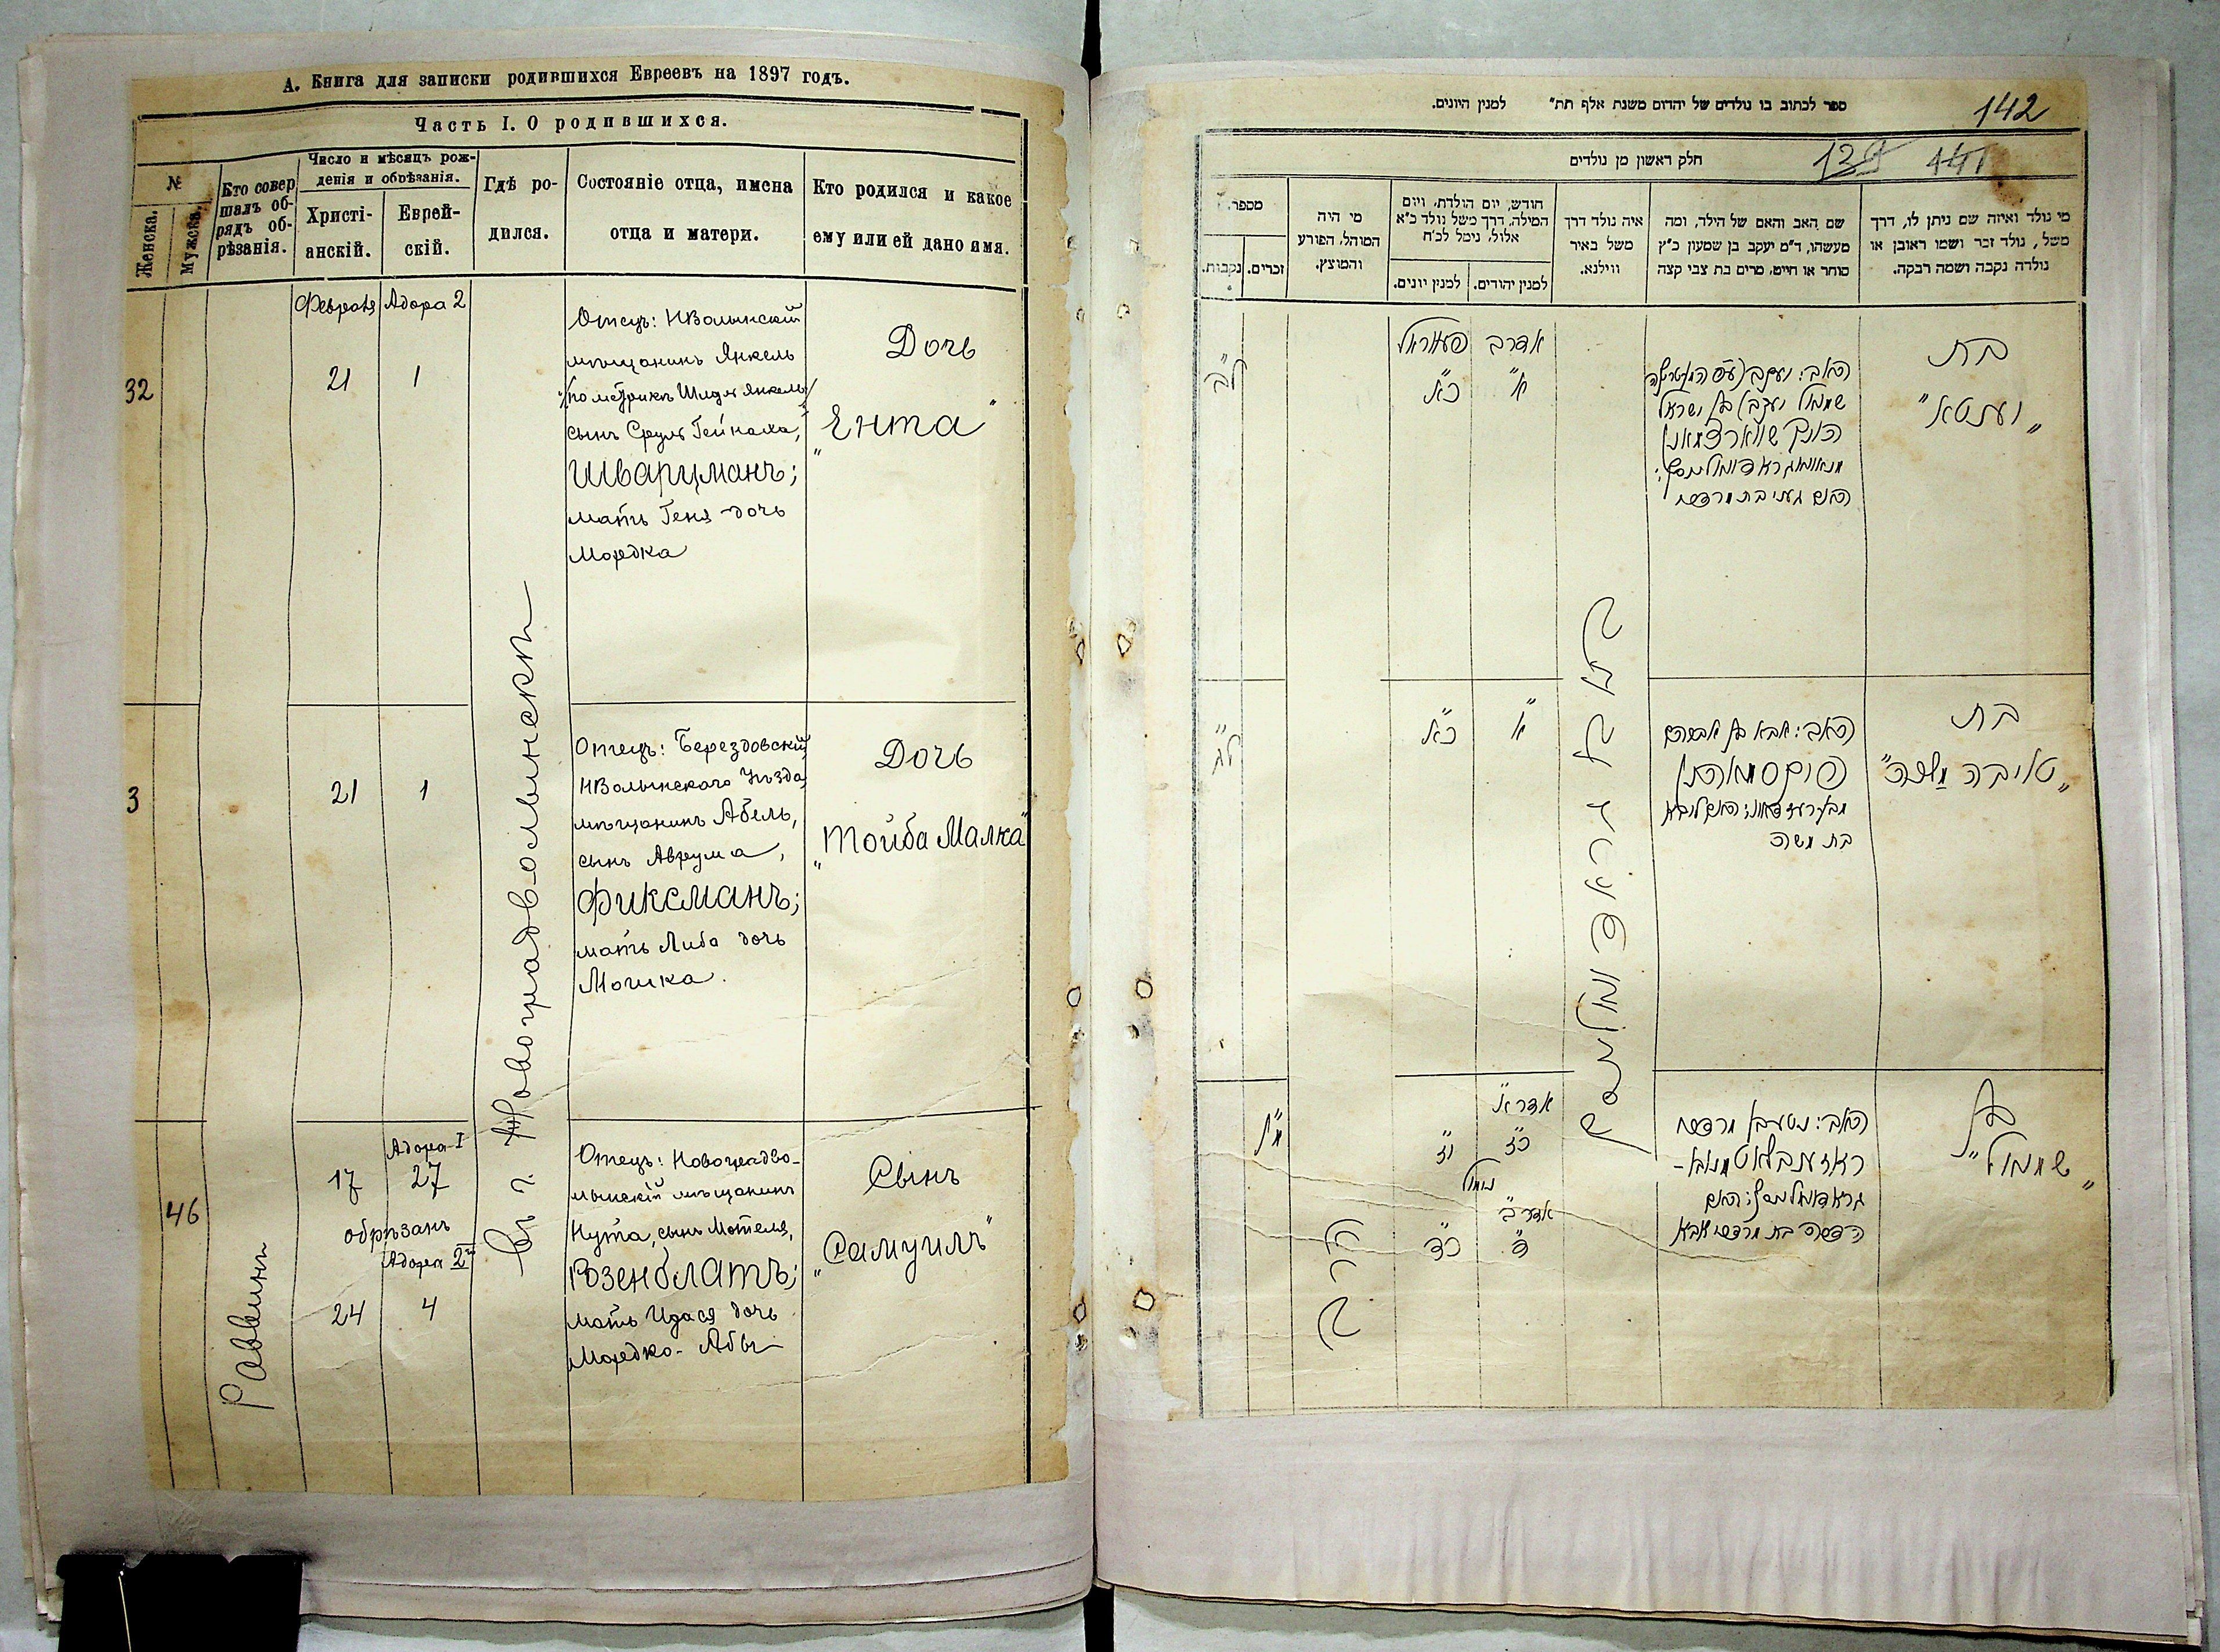 А. Книга для записки родившихся Евреевъ на 1897 годъ.
Часть I. О родившихся.
№
Женска.
Мужска.
Кто совер
шалъ об-
рядъ об-
рѣзанія.
Число и мѣсяцъ рож-
денія и обрѣзанія.
Христі-
анскій.
Еврей-
скій.
Гдѣ ро-
дился.
Состояніе отца, имена
отца и матери.
Кто родился и какое
ему или ей дано имя.
32
Февраля
21
Адора 2
1
Отецъ: НВолынскій
мѣщанинъ Янкель
/по метрикѣ Янкель/
сынъ Сруль Гейноха,
Шварцманъ;
мать Геня дочь
Мордка
Дочь
"Ента"
3
21
1
Отецъ: Берездовскій
НВолынскаго Уѣзда
мѣщанинъ Абель,
сынъ Аврума,
Фиксманъ;
мать Либа дочь
Мошка.
Дочь
"Тойба Малка"
46
Раввинъ
17
Адора I
27
обрѣзанъ
Адора 2
24
4
Въ г. Новоградволынскѣ
Отецъ: Новоградво-
лынскій мѣщанинъ
Нута, сынъ Мотеля,
Розенблатъ;
мать Идася дочь
Мордко-Абы
Сынъ
"Самуилъ"
142
ספר לכתוב בו נולדים של יהדום משנת אלף תת" למנין היונים.
חלק ראשון מן נולדים
141
מספר.
נקבות.
זכרים.
מי היה
המוהל, הפורע
והמוצץ.
חודש, יום הולדת, ויום
המילה, דרך משל נולד כ"א
אלול, נימל לכ"ח
למנין יונים.
למנין יהודים.
איה נולד דרך
משל באיר
ווילנא.
שם האב והאם של הילד, ומה
מעשהו, ד"מ יעקב בן שמעון כ"ץ
סוחר או חייט, מרים בת צבי קצה
מי נולד ואיזה שם ניתן לו, דרך
משל, נולד זכר ושמו ראובן או
נולדה נקבה ושמה רבקה.
ל"ב
פעווראל
כ"א
אדר ב
א"
שמואל יעקב) בן ישראל
הענך שווארצמאן
האם געני בת מרדכי
בת
"יענטא"
ל"ג
כ"א
א"
האב: אבא בן אברהם
פיקסמאן
בת משה
בת
"טויבה מלכה"
מ"ו
הרב
י"ז
אדר א
כ"ז
נימול
אדר ב
כ"ד
ד"
האב: נוטע בן מרדכי
ראזענבלאט
הדסה בת מרדכי אבא
בן
"שמואל"